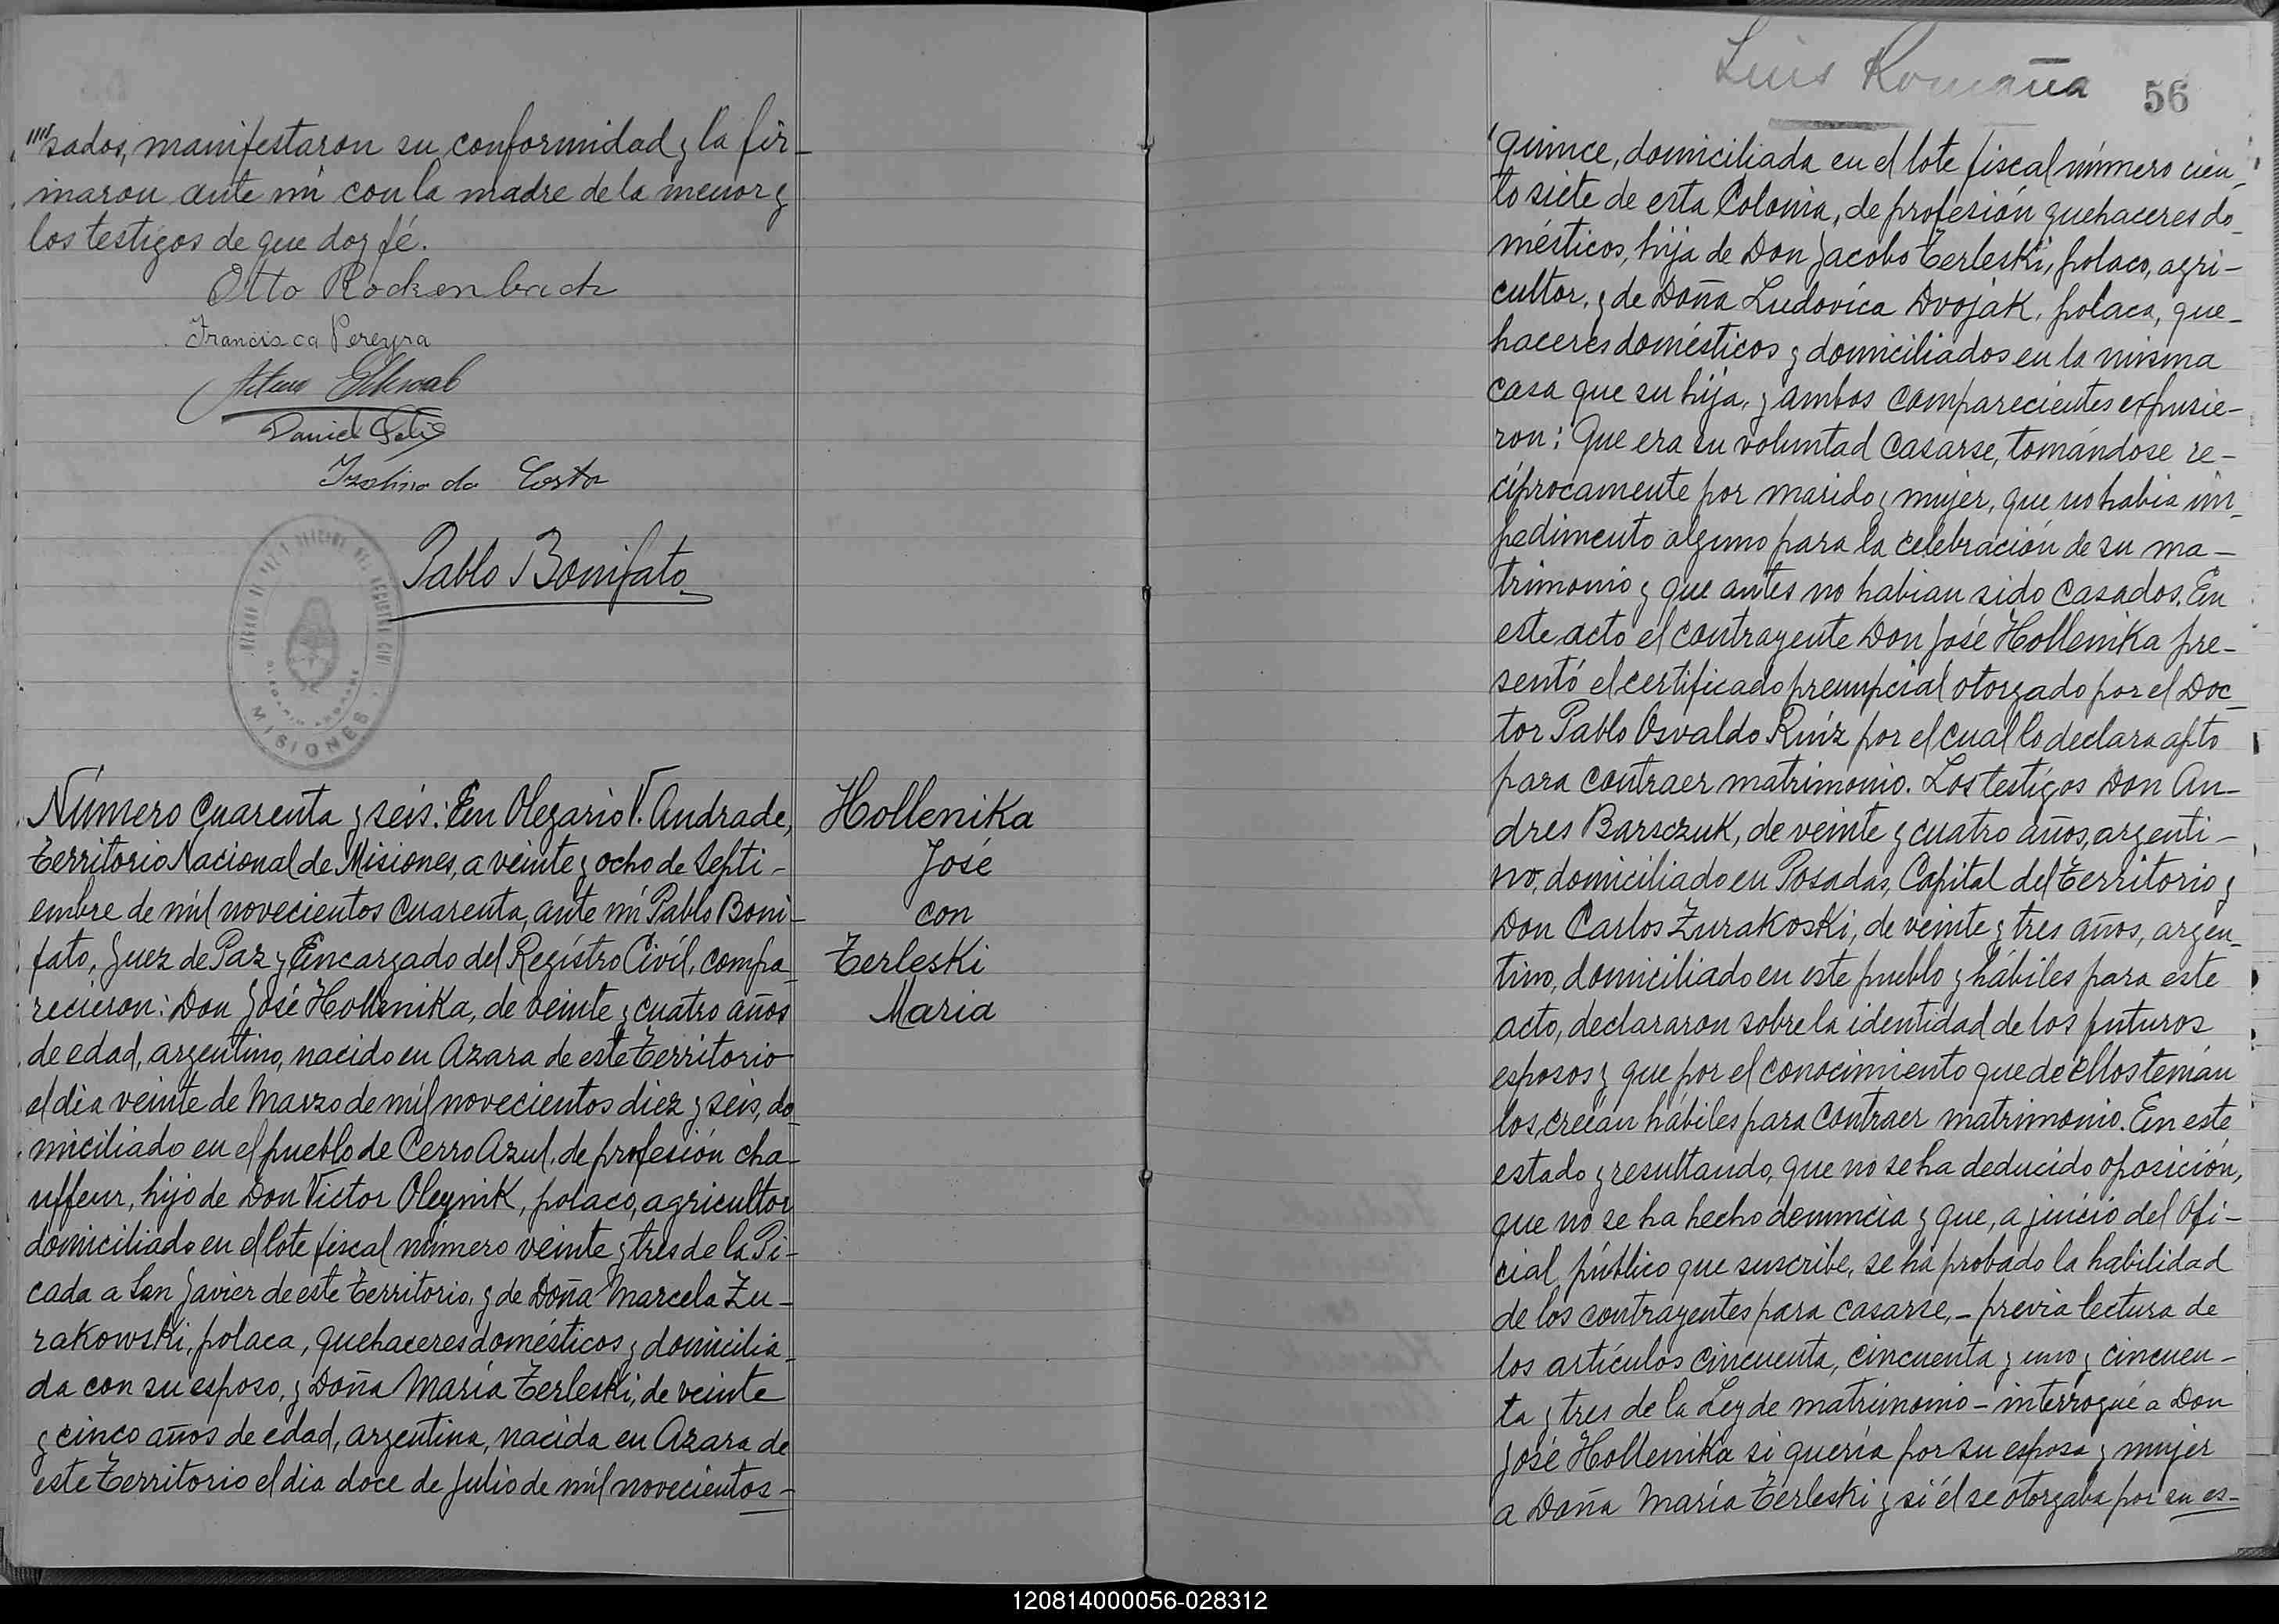 """sados, manifestaron su conformidad y la fir-
maron ante mi con la madre de la menor y
los testigos de que doy fé.
Otto Rockenbach
Francisca Pereyra
Arturo
Daniel
Izolino da Costa
Pablo Bonifato
MISIONES
Número cuarenta y seis: En Olegario V. Andrade,
Territorio Nacional de Misiones, a veinte y ocho de Septi-
embre de mil novecientos cuarenta, ante mí Pablo Boni-
fato, Juez de Paz y Encargado del Registro Civil, compa-
recieron: Don José Hollenika, de veinte y cuatro años
de edad, argentino, nacido en Azara de este Territorio
el dia veinte de Marzo de mil novecientos diez y seis, do-
miciliado en el pueblo de Cerro Azul, de profesión cha-
uffeur, hijo de Don Victor Oleynik, polaco, agricultor
domiciliado en el lote fiscal número veinte y tres de la Pi-
cada a San Javier de este Territorio, y de Doña Marcela Zu-
rakowski, polaca, quehaceres domésticos y domicilia-
da con su esposo, y Doña María Terleski, de veinte
y cinco años de edad, argentina, nacida en Azara de
este Territorio el dia doce de Julio de mil novecientos-
Hollenika
José
con
Terleski
Maria
Luis Romaña
56
quince, domiciliada en el lote fiscal número cien-
to siete de esta Colonia, de profesión quehaceres do-
mésticos, hija de Don Jacobo Terleski, polaco, agri-
cultor, y de Doña Ludovica Dvojak, polaca, que-
haceres domésticos y domiciliados en la misma
casa que su hija, y ambos comparecientes expusie-
ron: Que era su voluntad casarse, tomándose re-
cíprocamente por marido y mujer, que no habia im-
pedimento alguno para la celebración de su ma-
trimonio y que antes no habian sido casados. En
este acto el contrayente Don José Hollenika pre-
sentó el certificado prenupcial otorgado por el Doc-
tor Pablo Osvaldo Ruíz por el cual lo declara apto
para contraer matrimonio. Los testigos Don An-
dres Barsczuk, de veinte y cuatro años, argenti-
no, domiciliado en Posadas, Capital del Territorio y
Don Carlos Zurakoski, de veinte y tres años, argen-
tino, domiciliado en este pueblo y hábiles para este
acto, declararon sobre la identidad de los futuros
esposos y que por el conocimiento que de ellos tenían
los creían hábiles para contraer matrimonio. En este
estado y resultando, que no se ha deducido oposición,
que no se ha hecho denuncia y que, a juicio del Ofi-
cial público que suscribe, se ha probado la habilidad
de los contrayentes para casarse,- previa lectura de
los artículos cincuenta, cincuenta y uno y cincuen-
ta y tres de la Ley de matrimonio - interrogué a Don
José Hollenika si quería por su esposa y mujer
a Doña María Terleski y si él se otorgaba por su es-
120814000056-028312